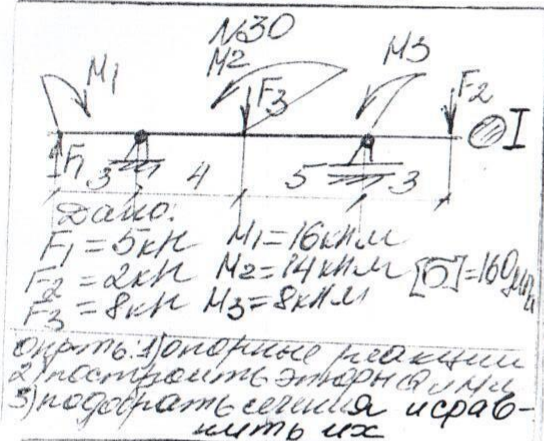 №30
M1 M2 M3
F1 F3 F2 I
3 4 5 3
Дано:
F1=5кН M1=16кНм
F2=2кН M2=14кНм [σ]=160мпа
F3=8кН M3=8кНм
опр-ть: 1) опорные реакции
2) построить эпюры Q и Ми
3) подобрать сечения и срав-
нить их